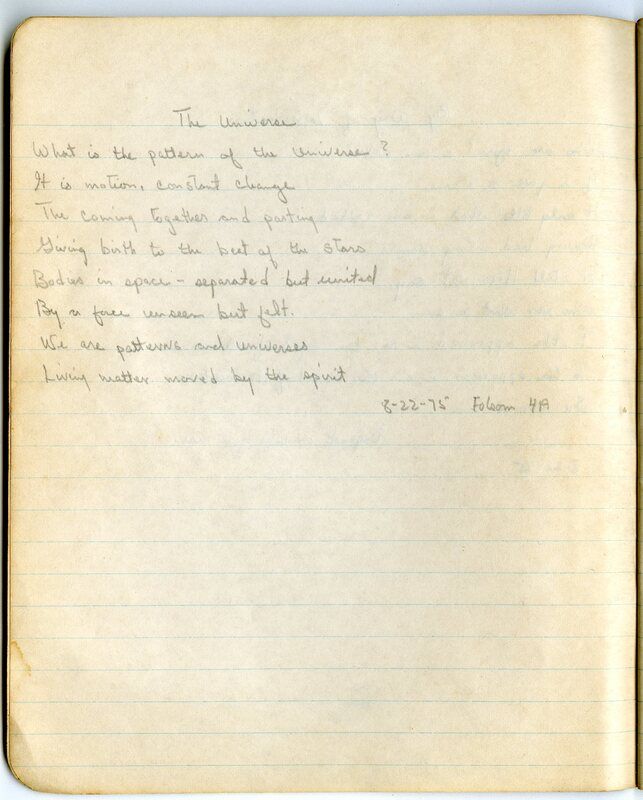 The Universe
What is the pattern of the Universe?
It is motion, constant change
The coming together and parting
Giving birth to the best of the stars
Bodies in space - separated but united
By a force unseen but felt.
We are patterns and universes
Living matter moved by the spirit
8-22-75 Folsom 4A